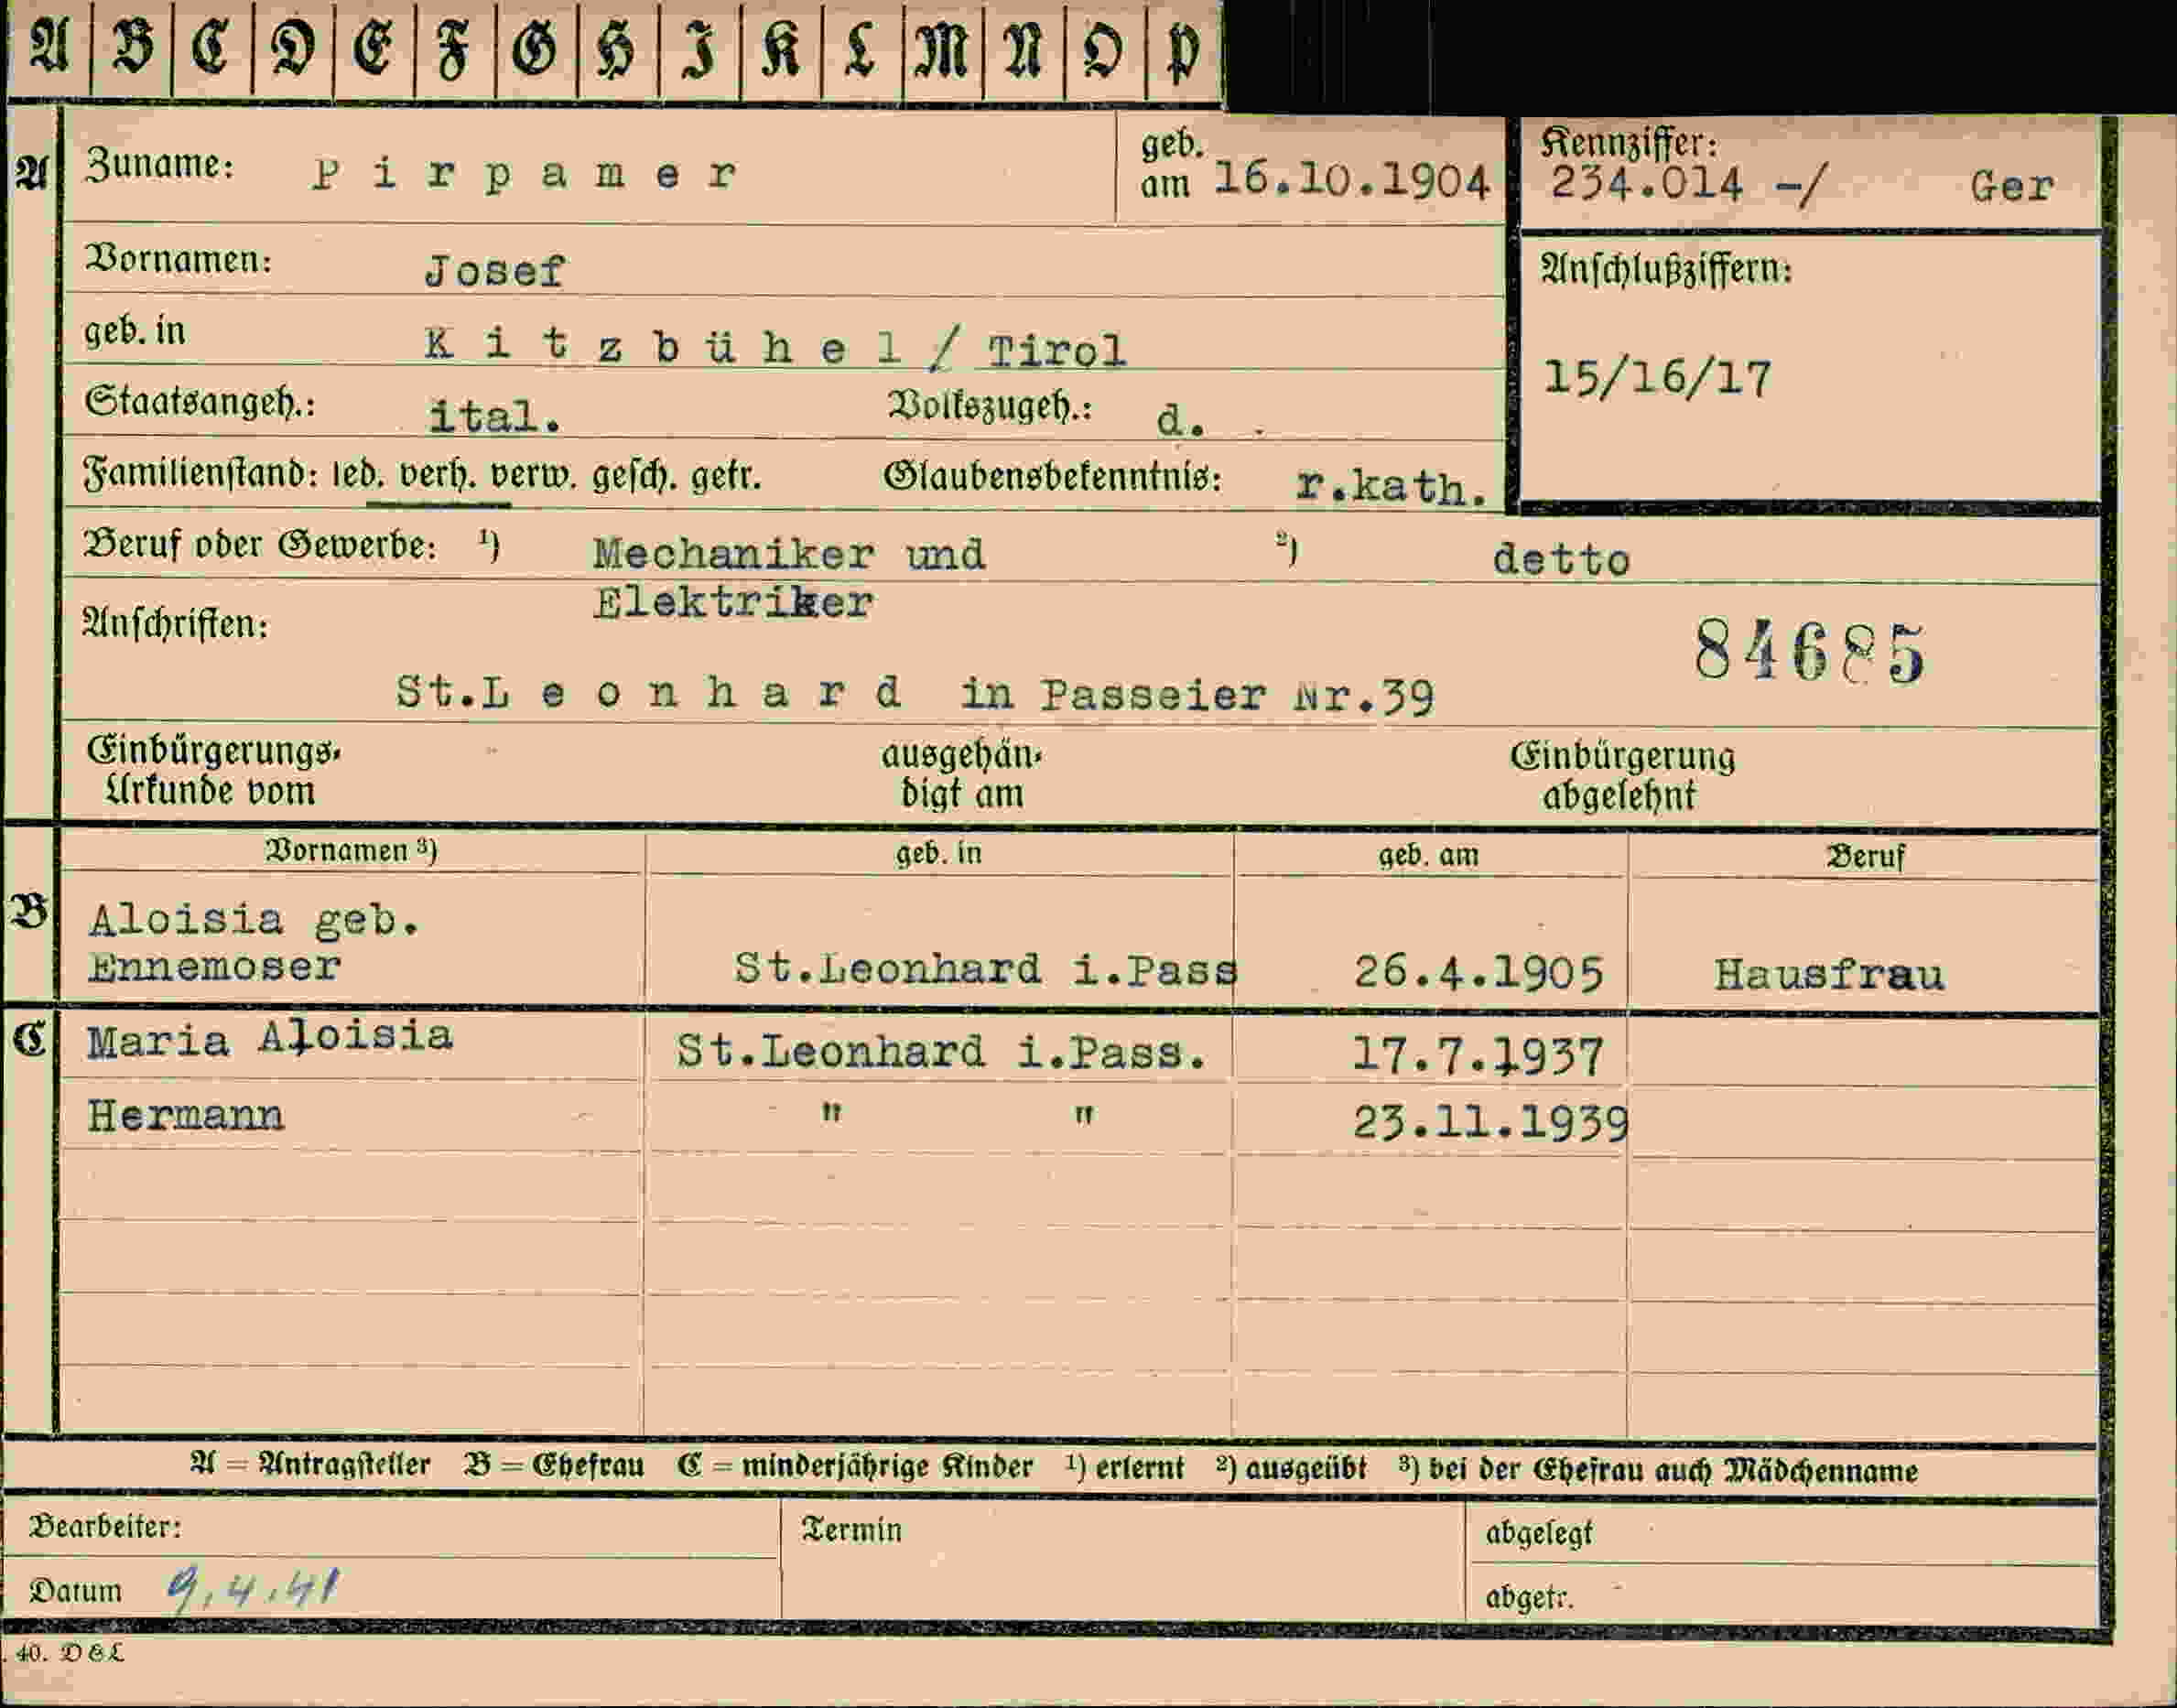 A B C D E F G H I K L M N O P
A Zuname: Pirpamer geb. am 16.10.1904
Kennziffer: 234.014 -/ Ger
Vornamen: Josef
Anschlußziffern:
geb. in Kitzbühel/Tirol
15/16/17
Staatsangeh.: ital. Volkszugeh.: d.
Familienstand: led. verh. verw. gesch. getr. Glaubensbekenntnis: r.kath.
Beruf oder Gewerbe: 1) Mechaniker und 2) detto
Elektriker
Anschriften:
84685
St.Leonhard in Passeier Nr.39
Einbürgerungs- ausgehän- Einbürgerung
Urkunde vom digt am abgelehnt
Vornamen 3) geb. in geb. am Beruf
B Aloisia geb.
Ennemoser St.Leonhard i.Pass 26.4.1905 Hausfrau
C Maria Aloisia St.Leonhard i.Pass. 17.7.1937
Hermann " " 23.11.1939
A = Antragsteller B = Ehefrau C = minderjährige Kinder 1) erlernt 2) ausgeübt 3) bei der Ehefrau auch Mädchenname
Bearbeiter: Termin abgelegt
Datum 9.4.41 abgetr.
. 40. D&L